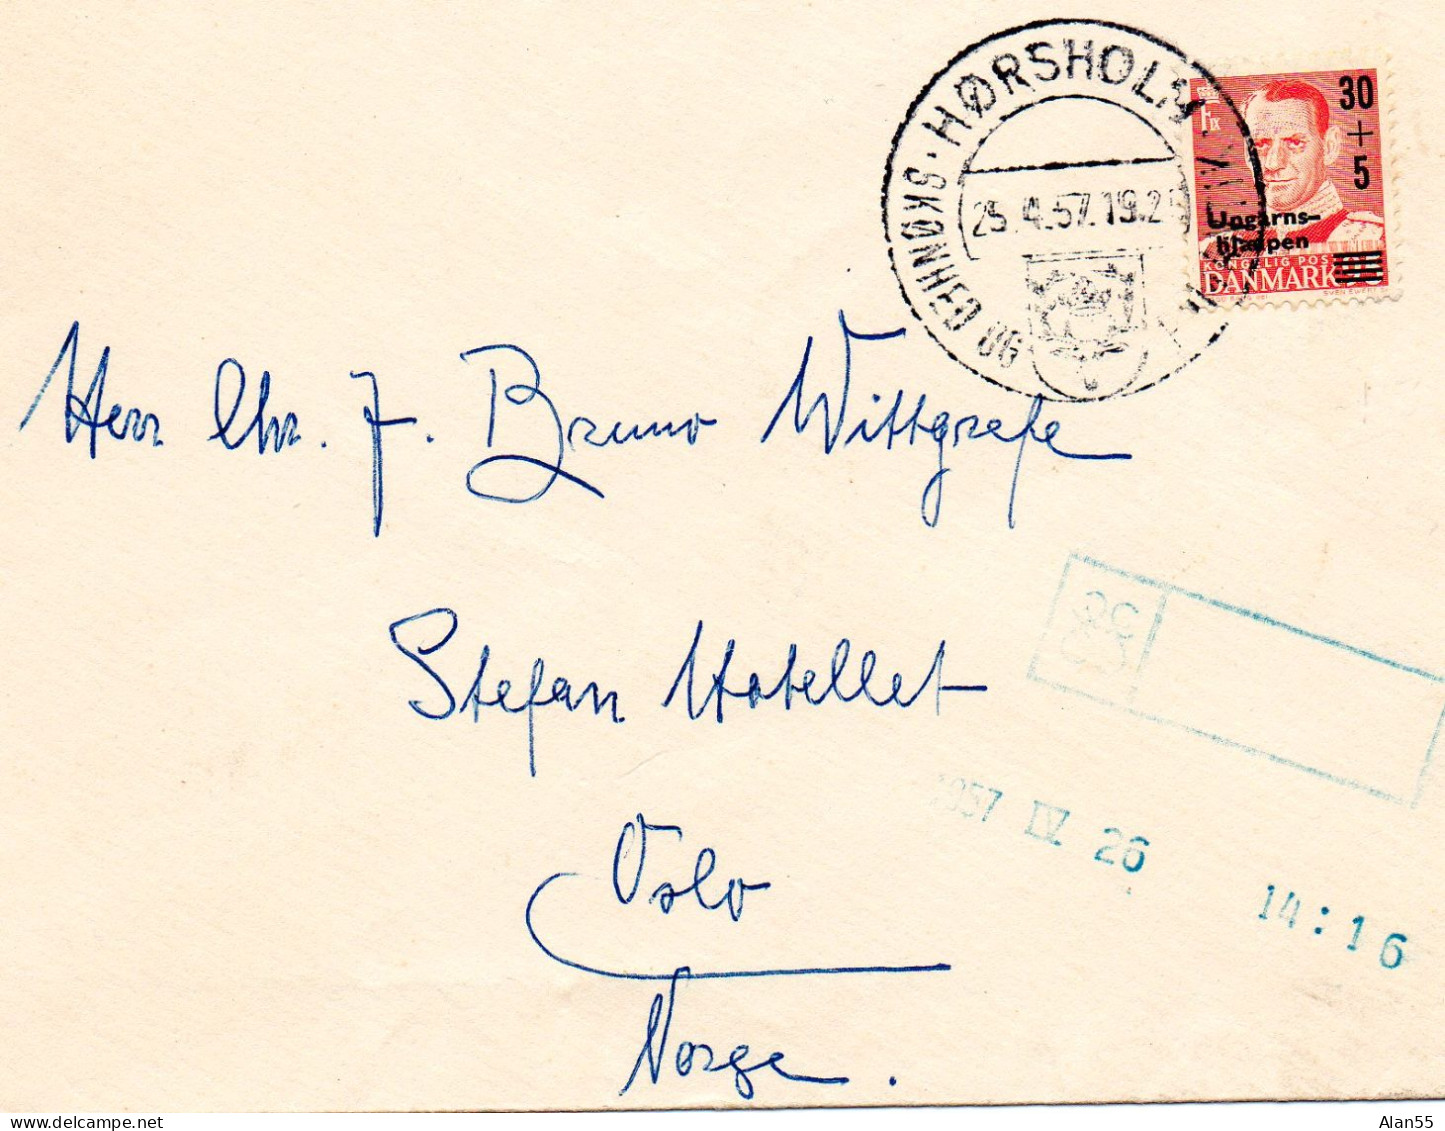 HØRSHOLM
SKØNHED OG
25.4.57.19.2
30
+
5
Ungarns-
hjælpen
KONGELIG POST
DANMARK
Herr Chr. F. Bruno Wittgrefe
Stefan Hotellet
Oslo
Norge.
1957 IV 26
14:16
delcampe.net
Alan55